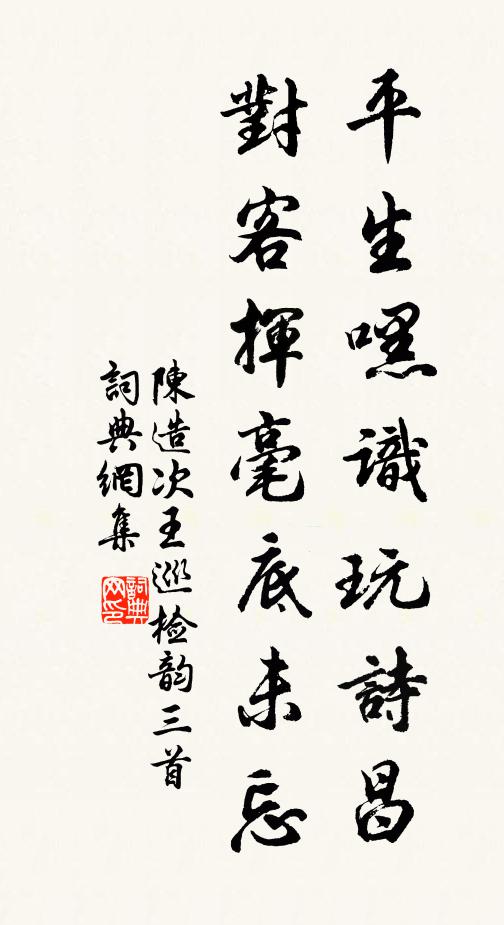 平生嘿識玩詩昌
對客揮毫底未忘
陳造次王巡檢韵三首
詞典網集
詞典網印